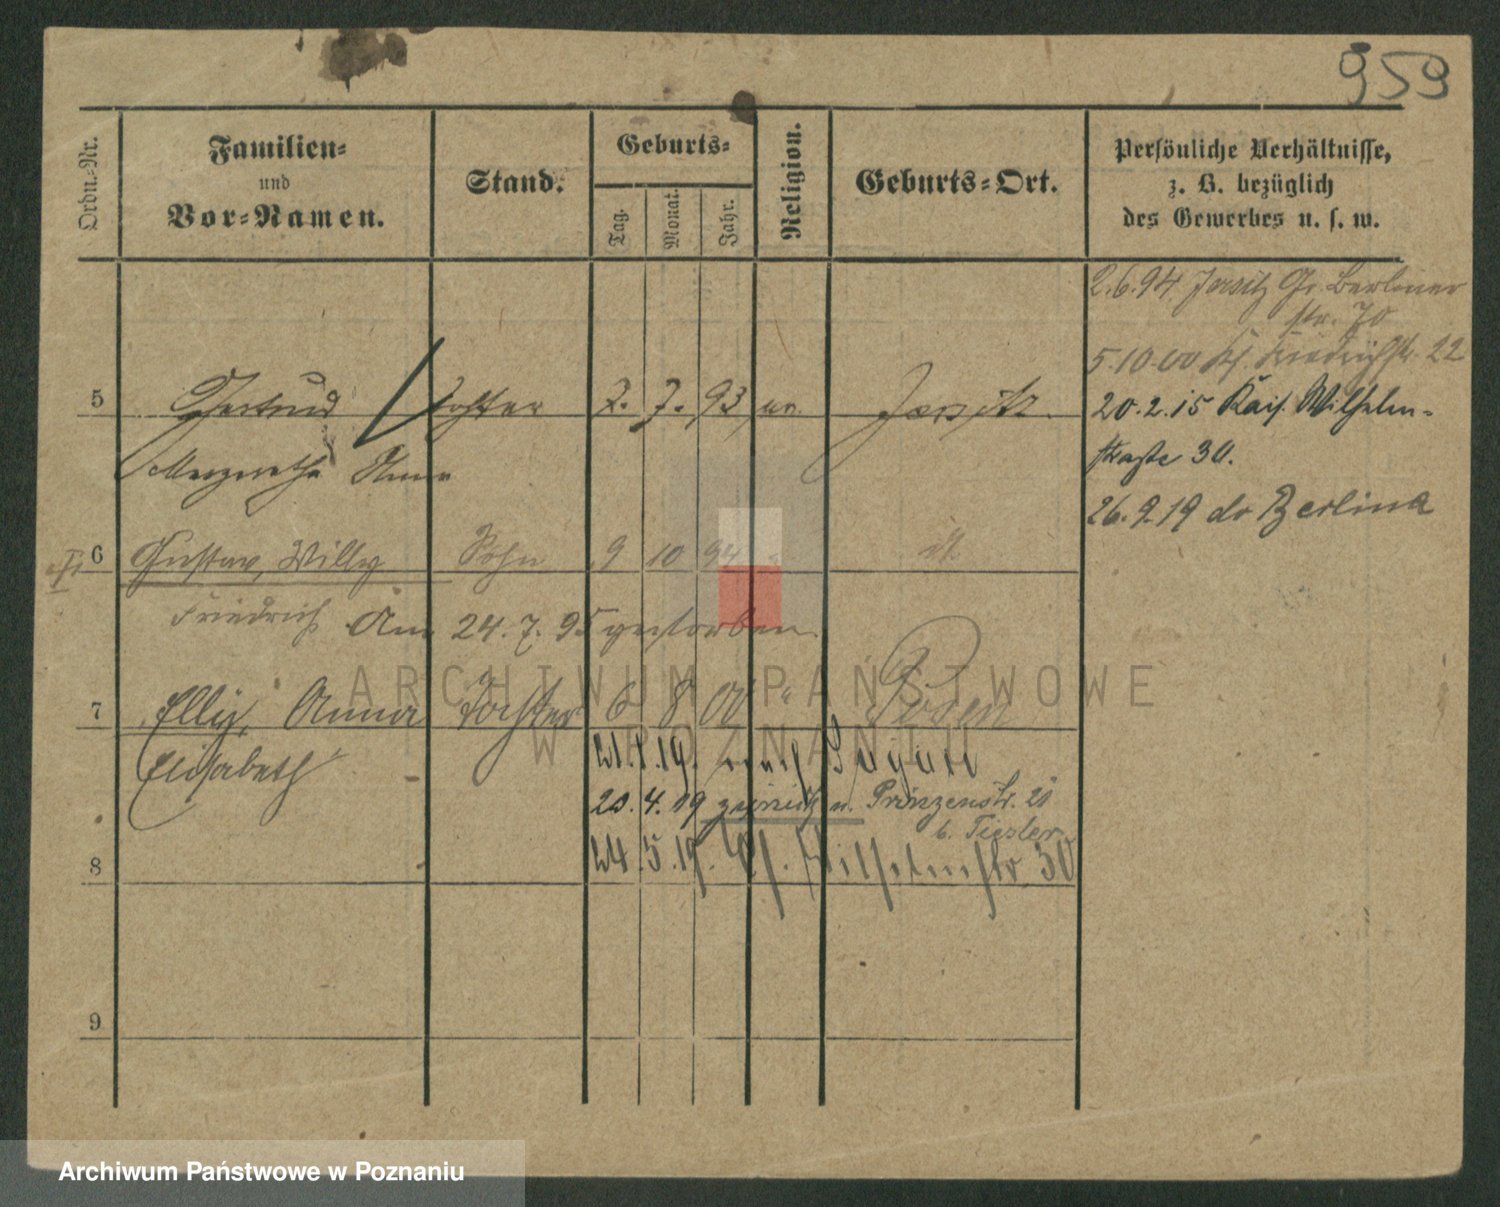 959
Ordn.-Nr.
Familien-
und
Vor-Namen.
Stand.
Geburts-
Tag.
Monat.
Jahr.
Religion.
Geburts-Ort.
Persönliche Verhältnisse,
z. B. bezüglich
des Gewerbes u. s. w.
2.6.94 Jersitz Gr. Berliner
str. 70
5.10.00 Kl. Friedrichstr. 22
5 Gertrud Tochter 2. 7. 93 ev. Jersitz
20.2.15 Kais. Wilhelm-
straße 30.
Margarethe Anna
26.9.19 do Berlina
6 Gustav, Willy Sohn 9 10 94
Friedrich Am 24.7.95 gestorben.
ARCHIWUM PAŃSTWOWE
W POZNANIU
7 Elly, Anna Tochter 6 8 00 " Posen
Elisabeth
21.1.19. nach Sagan
23.4.19 zurück n. Prinzenstr. 21
b. Tiesler
8 24.5.19. Wilhelmstr 30
9
Archiwum Państwowe w Poznaniu